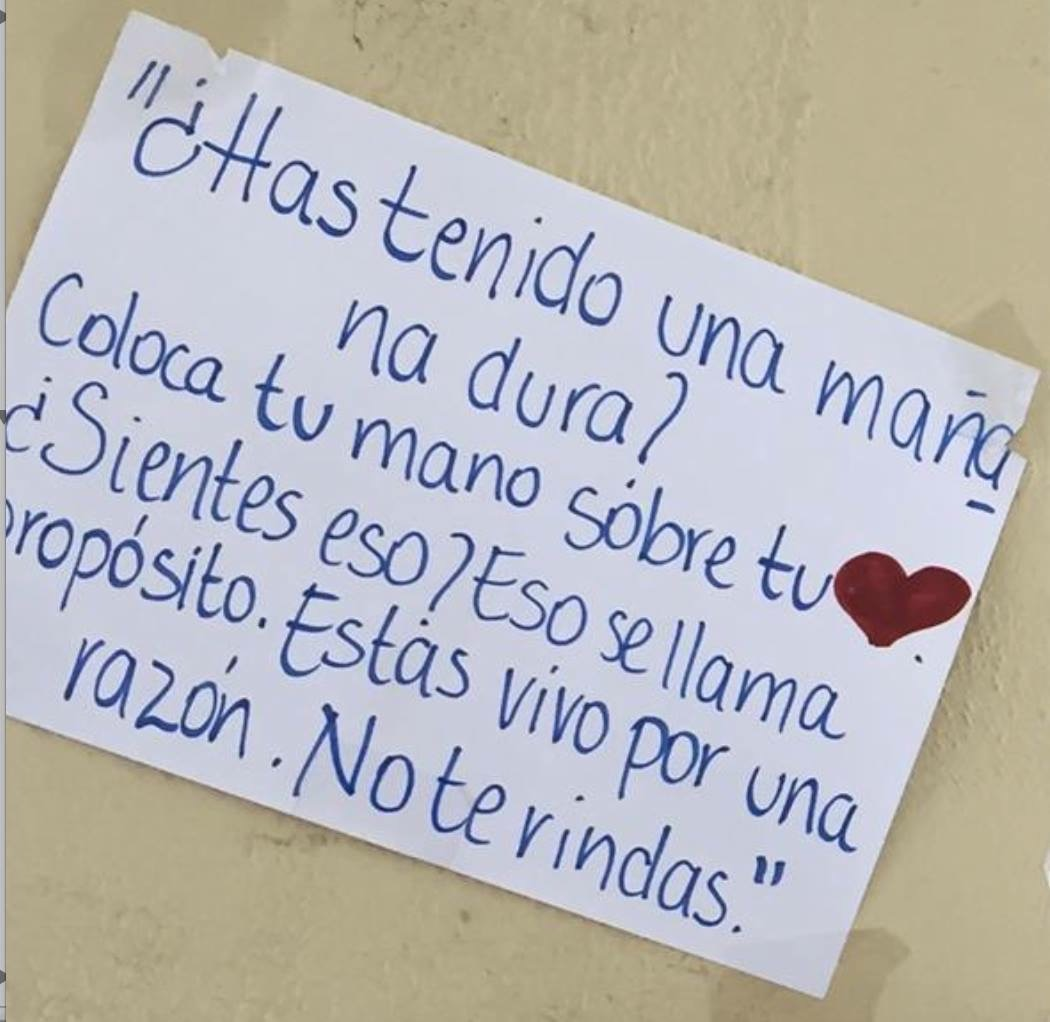 "¿Has tenido una maña
na dura?
Coloca tu mano sóbre tu ❤.
¿Sientes eso? Eso se llama
propósito. Estás vivo por una
razón. No te rindas."